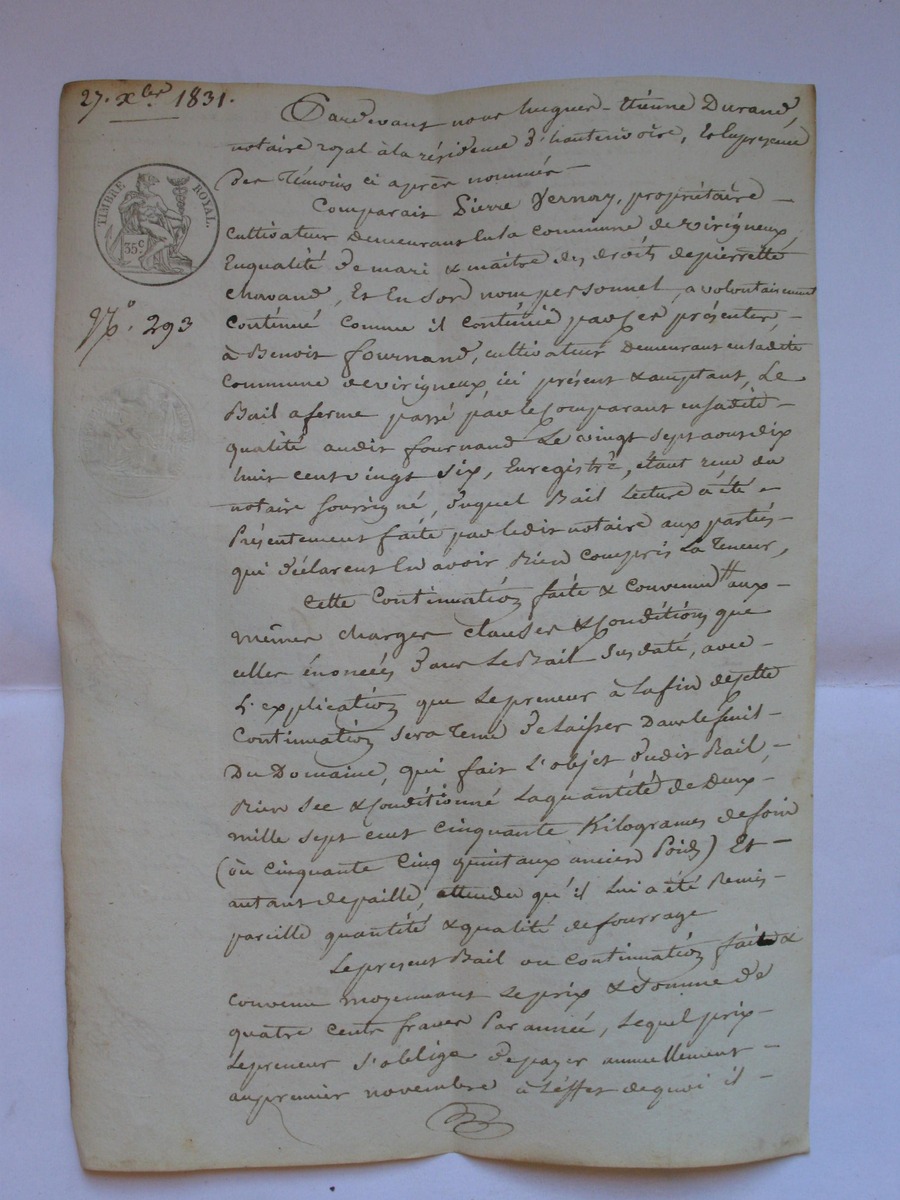 27. Xbre 1831.
Pardevant nous hugues - Étienne Durand,
notaire royal à la résidence d'hauterivoire, Et En presence
des Témoins ci après nommés -
TIMBRE ROYAL.
35c
Comparait Pierre Vernay, propriétaire -
Cultivateur Demeurant En la commune de virigneux
En qualité de mari & maitre des droits de pierrette
chavand, Et En Son nom personnel, a volontairement
No. 293
Continué Comme il continue par Ces présentes, -
à Benoit fournand, cultivateur Demeurant en ladite
Commune de virigneux ici présent & acceptant, Le
Bail a ferme passé par le Comparant en sadite -
qualité audit fournand Le vingt Sept aout dix
huit cent vingt Six, Enregistré, étant reçu du
notaire Soussigné, duquel Bail Lecture a été -
Présentement faite par ledit notaire aux parties -
qui déclarent En avoir Bien Compris La Teneur,
Cette Continuation faite & convenue # aux -
mêmes charges clauses & Conditions que
celles énoncées dans Le Bail Susdaté, avec -
L'explication que Le preneur à La fin de cette
Continuation Sera Tenu de Laisser Dans le fenil -
Du Domaine, qui fait L'objet dudit Bail, -
Bien Sec & Conditionné La quantité de Deux -
mille Sept cent Cinquante Kilogrames de foin
(ou Cinquante Cinq quintaux ancien Poids) Et -
autant de paille, attendu qu'il Lui a été Remis -
pareille quantité & qualité de fourrage
Le present Bail ou Continuation fait &
Convenu moyennant Le prix & Somme de
quatre Cents francs Par année, Lequel prix -
Le preneur S'oblige de payer annuellement -
au premier novembre à L'effet de quoi il -